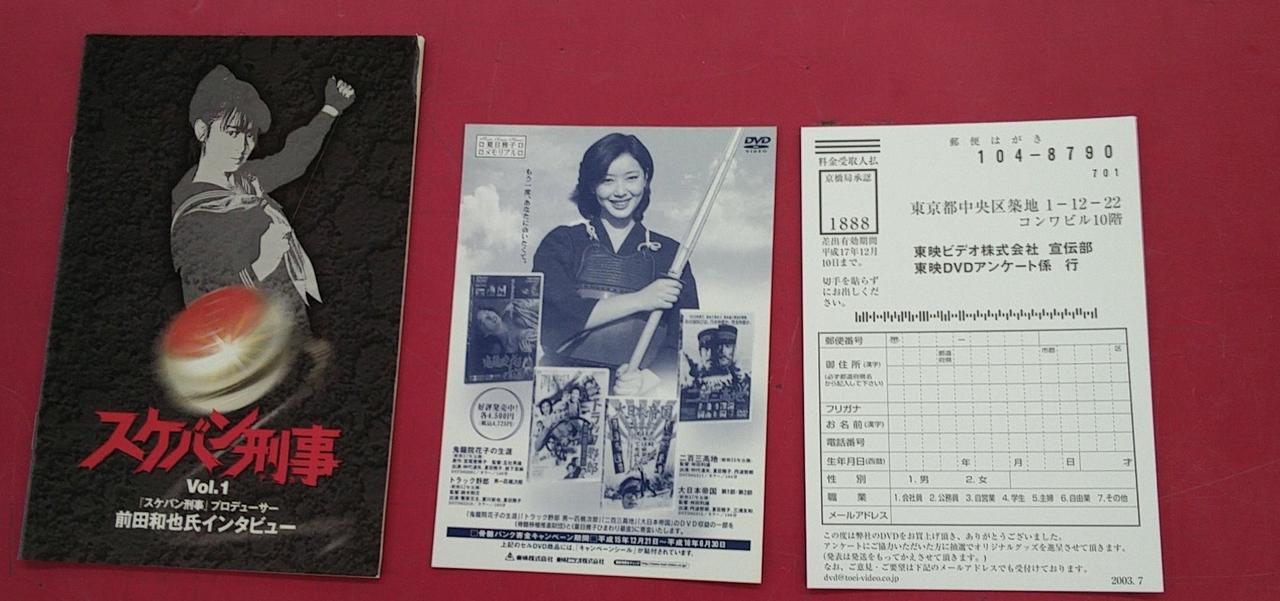 スケバン刑事
Vol.1
『スケバン刑事』プロデューサー
前田和也氏インタビュー
夏目雅子
メモリアル
DVD
VIDEO
もう一度、あなたに会いたくて。
好評発売中!
各4,500円
(税込4,725円)
鬼龍院花子の生涯
トラック野郎 男一匹桃次郎
二百三高地
大日本帝国 第1部・第2部
『鬼龍院花子の生涯』『トラック野郎 男一匹桃次郎』『二百三高地』『大日本帝国』のDVD収益の一部を
(骨髄移植推進財団)と(夏目雅子ひまわり基金)に寄贈いたします。
■骨髄バンク寄金キャンペーン期間■平成15年12月21日〜平成16年6月30日
上記のセルDVD商品には、「キャンペーンシール」が貼付されています。
東映株式会社 東映ビデオ株式会社
郵便はがき
料金受取人払
104-8790
701
京橋局承認
1888
差出有効期間
平成17年12月
10日まで。
切手を貼らず
にお出しくだ
さい。
東京都中央区築地 1-12-22
コンワビル10階
東映ビデオ株式会社 宣伝部
東映DVDアンケート係 行
郵便番号 〒 -
御住所(漢字) 都道府県 市郡 区
(必ず都道府県名
から記入して下さい)
フリガナ
お名前(漢字)
電話番号
生年月日(西暦) 年 月 日 才
性別 1.男 2.女
職業 1.会社員 2.公務員 3.自営業 4.学生 5.主婦 6.自由業 7.その他
メールアドレス
この度は弊社のDVDをお買上げ頂き、ありがとうございました。
アンケートにご協力いただいた方に抽選でオリジナルグッズを進呈させて頂きます。
(発表は発送をもってかえさせて頂きます。)
なお、ご意見・ご要望は下記のメールアドレスでも受付けております。
dvd@toei-video.co.jp
2003. 7